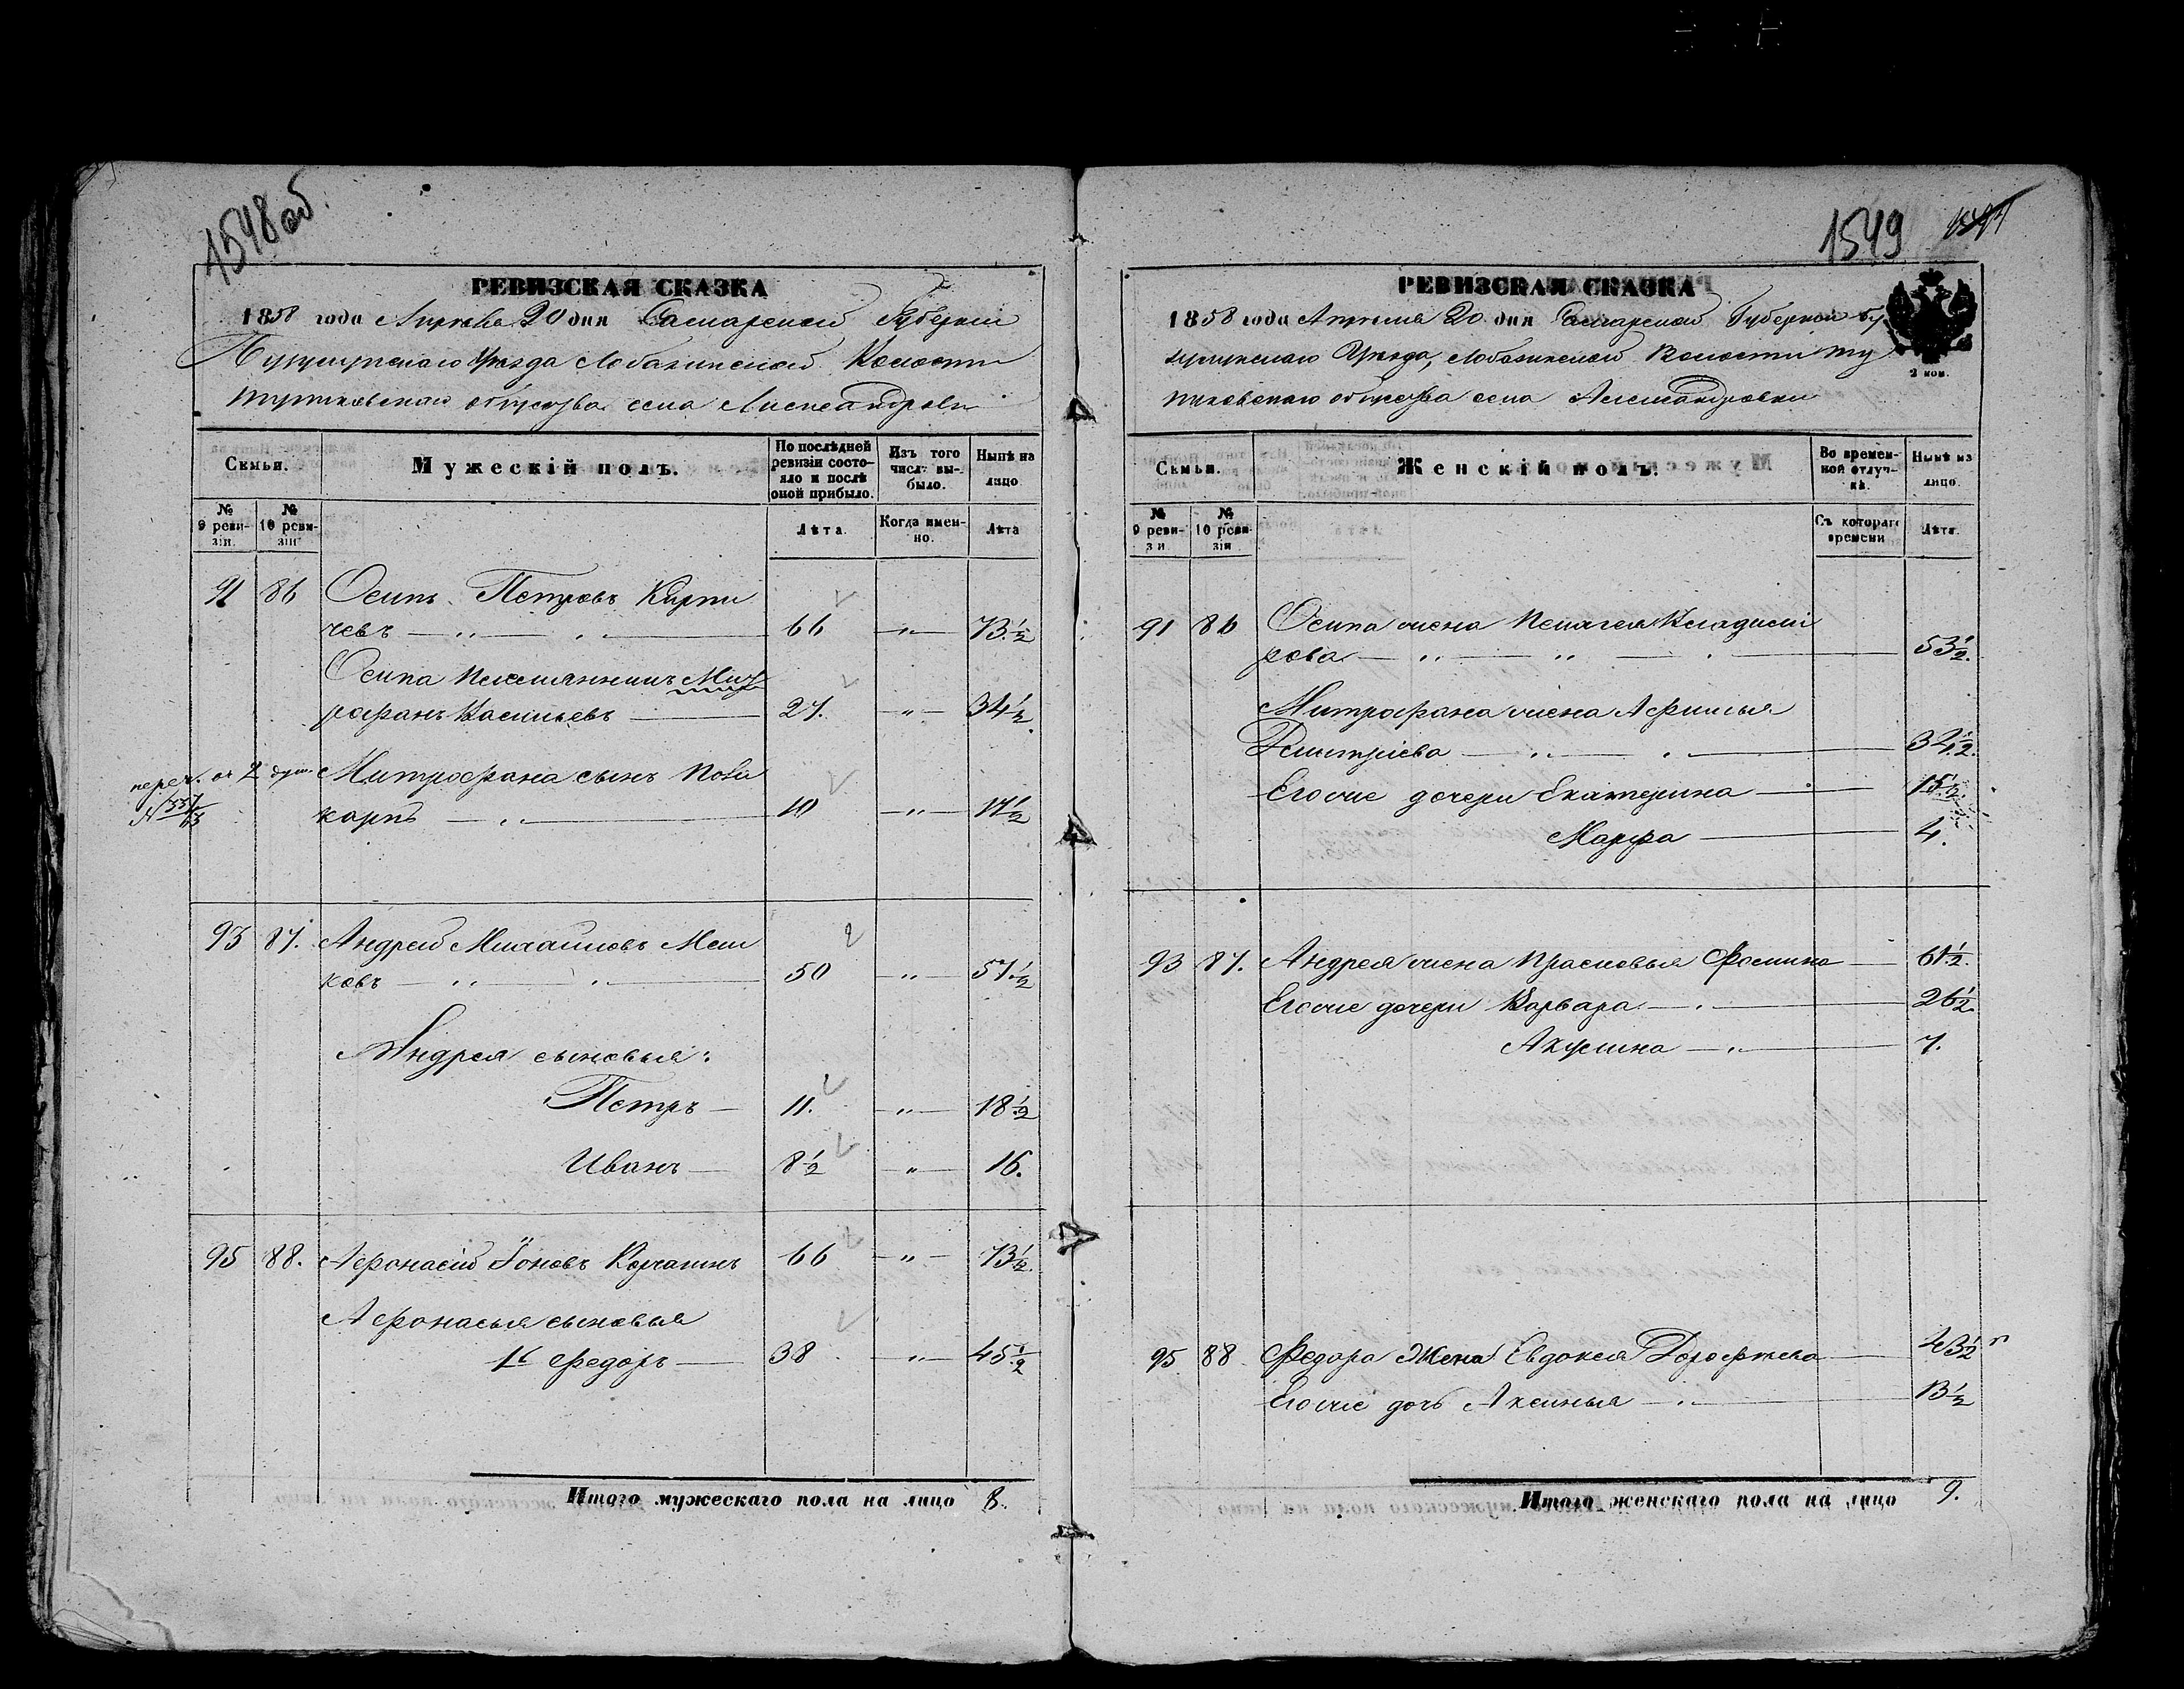 1548 об.
РЕВИЗСКАЯ СКАЗКА
1858 года Апреля 20 дня Самарской Губернии
Бугурусланского Уѣзда Лобазинской Волости
общества села Александровки
Семьи.
Мужескій полъ.
По послѣдней ревизіи состояло и послѣ оной прибыло.
Изъ того числа выбыло.
Нынѣ на лицо
№ 9 ревизіи.
№ 10 ревизіи
Лѣта.
Когда именно.
Лѣта
91 86 Осипъ Петровъ Кирпи
чевъ — „ — „ — 66 — „ — 73.½
Осипа племянникъ Мит
рофанъ Васильевъ — 27. — „ — 34½.
переч. от 2 Митрофана сынъ Поли
карпъ — „ — 10 — „ — 17½
93 87. Андрей Михайловъ Меш
ковъ — „ — „ — 50 — „ — 57.½
Андрея сыновья:
Петръ — 11. — „ — 18½
Иванъ — 8½ — „ — 16.
95 88. Афонасій Іоновъ Корчагинъ 66 — „ — 73½.
Афонасья сыновья
1й Федоръ — 38 — „ — 45½
Итого мужескаго пола на лицо 8.
1549
РЕВИЗСКАЯ СКАЗКА
1858 года Апреля 20 дня Самарской Губернии Бу
Уѣзда, Лобазинской Волости
общества села Александровки
2 коп.
Семьи.
Женскій полъ.
Во временной отлучкѣ.
Нынѣ на лицо.
№ 9 ревизи
№ 10 ревизіи
Съ котораго времени
Лѣта.
91 86 Осипа жена Пелагея Владими
рова — „ — „ — 53½.
Митрофана жена Афимья
Дмитріева — „ — „ — 34½.
Его же дочери Екатерина — 15½.
Марфа — 4.
93 87. Андрея жена Прасковья Фомина — 61½.
Его же дочери Варвара — „ — 26½.
Акулина — „ — 7.
95 88 Федора Жена Евдокея Дорофѣева — 43½
Его же дочь Аксинья — „ — 13½
Итого женскаго пола на лицо 9.